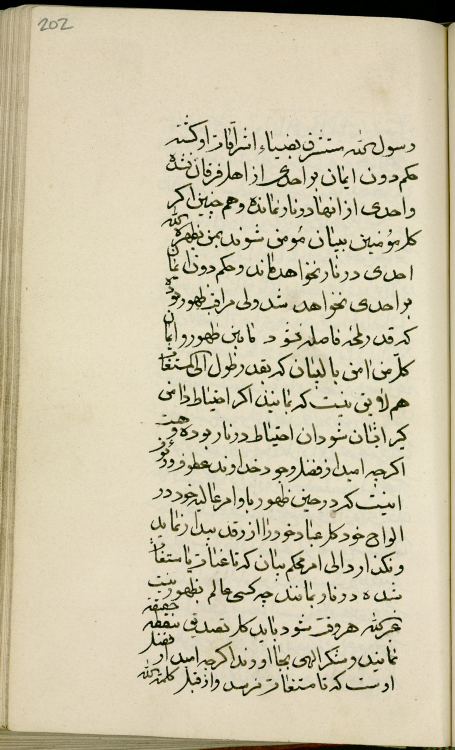 202
رسول الله مستشرق بضیاء اشراقات او گشته
حکم دون ایمان بر احدی از اهل فرقان نشده
واحدی از انها در نار نمانده و هم چنین اگر
کل مؤمنین ببیان مؤمن شوند بمن یظهره الله
احدی در نار نخواهد ماند و حکم دون ایمان
بر احدی نخواهد شد ولی مراقب ظهور بوده
که قدر لمحه فاصله نشود ما بین ظهور و ایمان
کل من امن بالبیان که بقدر طول الی المستغاث
هم لایق نیست که نمایند اگر احتیاط دامن
گیر ایشان شود ان احتیاط در نار بوده و هست
اگرچه امید از فضل وجود خداوند عطوف و رؤف
اینست که در حین ظهور باوامر عالیه خود در
الواح خود کل عباد خود را از رقد بیدار نماید
و نگذارد الی امر محکم بیان که تا غیاث یا مستغاث
شده در نار نمانند چه کسی عالم بظهور نیست
غیر الله هر وقت شود باید کل تصدیق بنقطه حقیقت
نمایند و شکر الهی بجا اورند اگرچه امید از فضل
اوست که تا مستغاث نرسد و از قبل کلمة الله